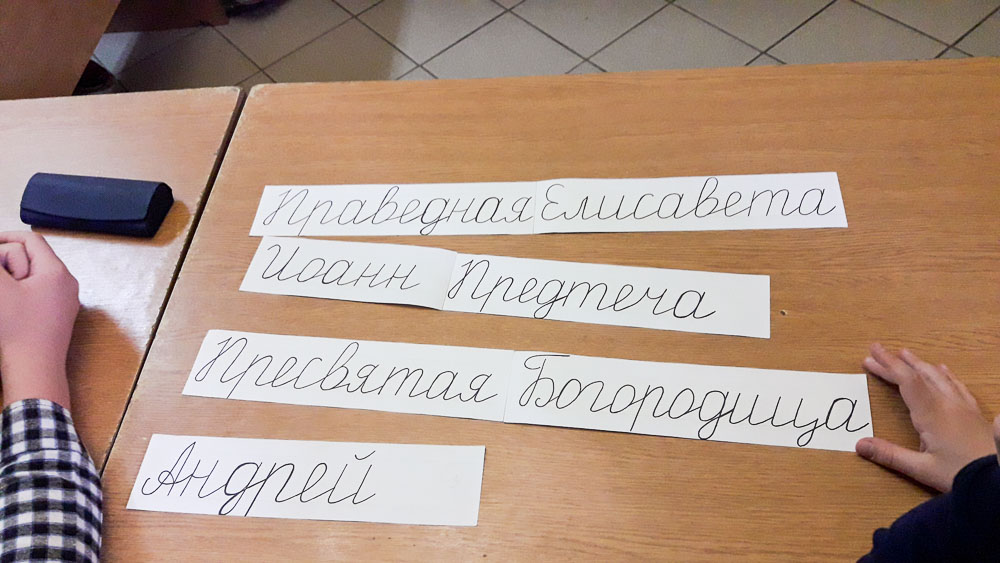 Праведная Елисавета
Иоанн Предтеча
Пресвятая Богородица
Андрей